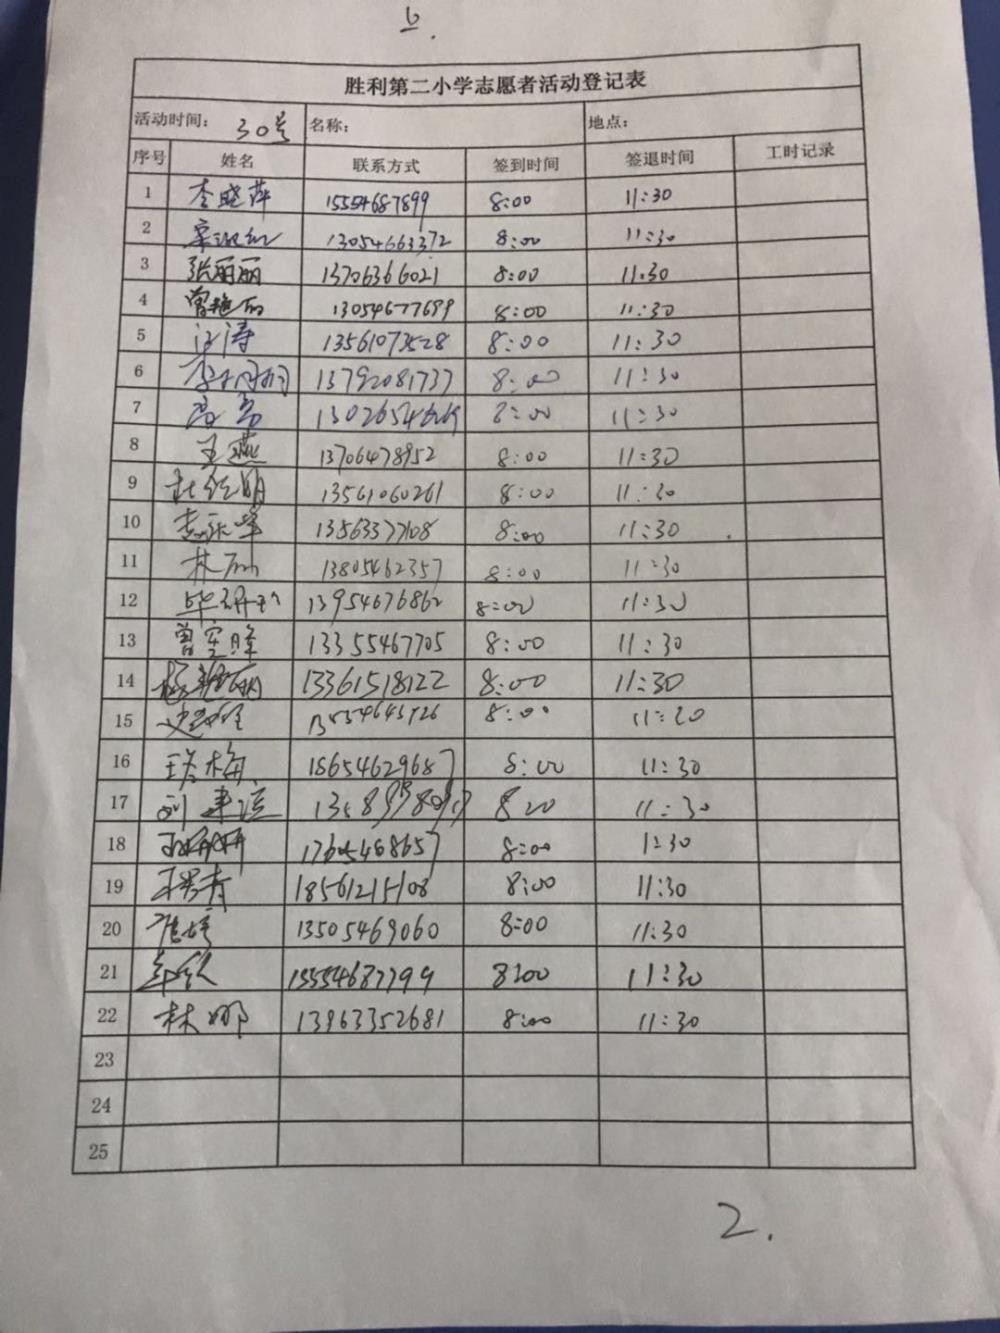 6.
胜利第二小学志愿者活动登记表
活动时间: 30号 名称: 地点:
序号 姓名 联系方式 签到时间 签退时间 工时记录
1 李晓萍 15554687899 8:00 11:30
2 13054663372 8:00 11:30
3 张丽丽 13706366021 8:00 11:30
4 曾艳丽 13054677699 8:00 11:30
5 汪涛 13561073528 8:00 11:30
6 13792081737 8:00 11:30
7 8:00 11:30
8 王燕 13706478952 8:00 11:30
9 13561060261 8:00 11:30
10 13563377108 8:00 11:30
11 林 13805462357 8:00 11:30
12 13954676862 8:00 11:30
13 曾宪峰 13355467705 8:00 11:30
14 杨艳丽 13361518122 8:00 11:30
15 8:00 11:20
16 梅 18654629687 8:00 11:30
17 刘建 8 20 11:30
18 17605468657 8:00 1:30
19 18561215108 8:00 11:30
20 13505469060 8:00 11:30
21 15554687799 8:00 11:30
22 林娜 13963352681 8:00 11:30
23
24
25
2.